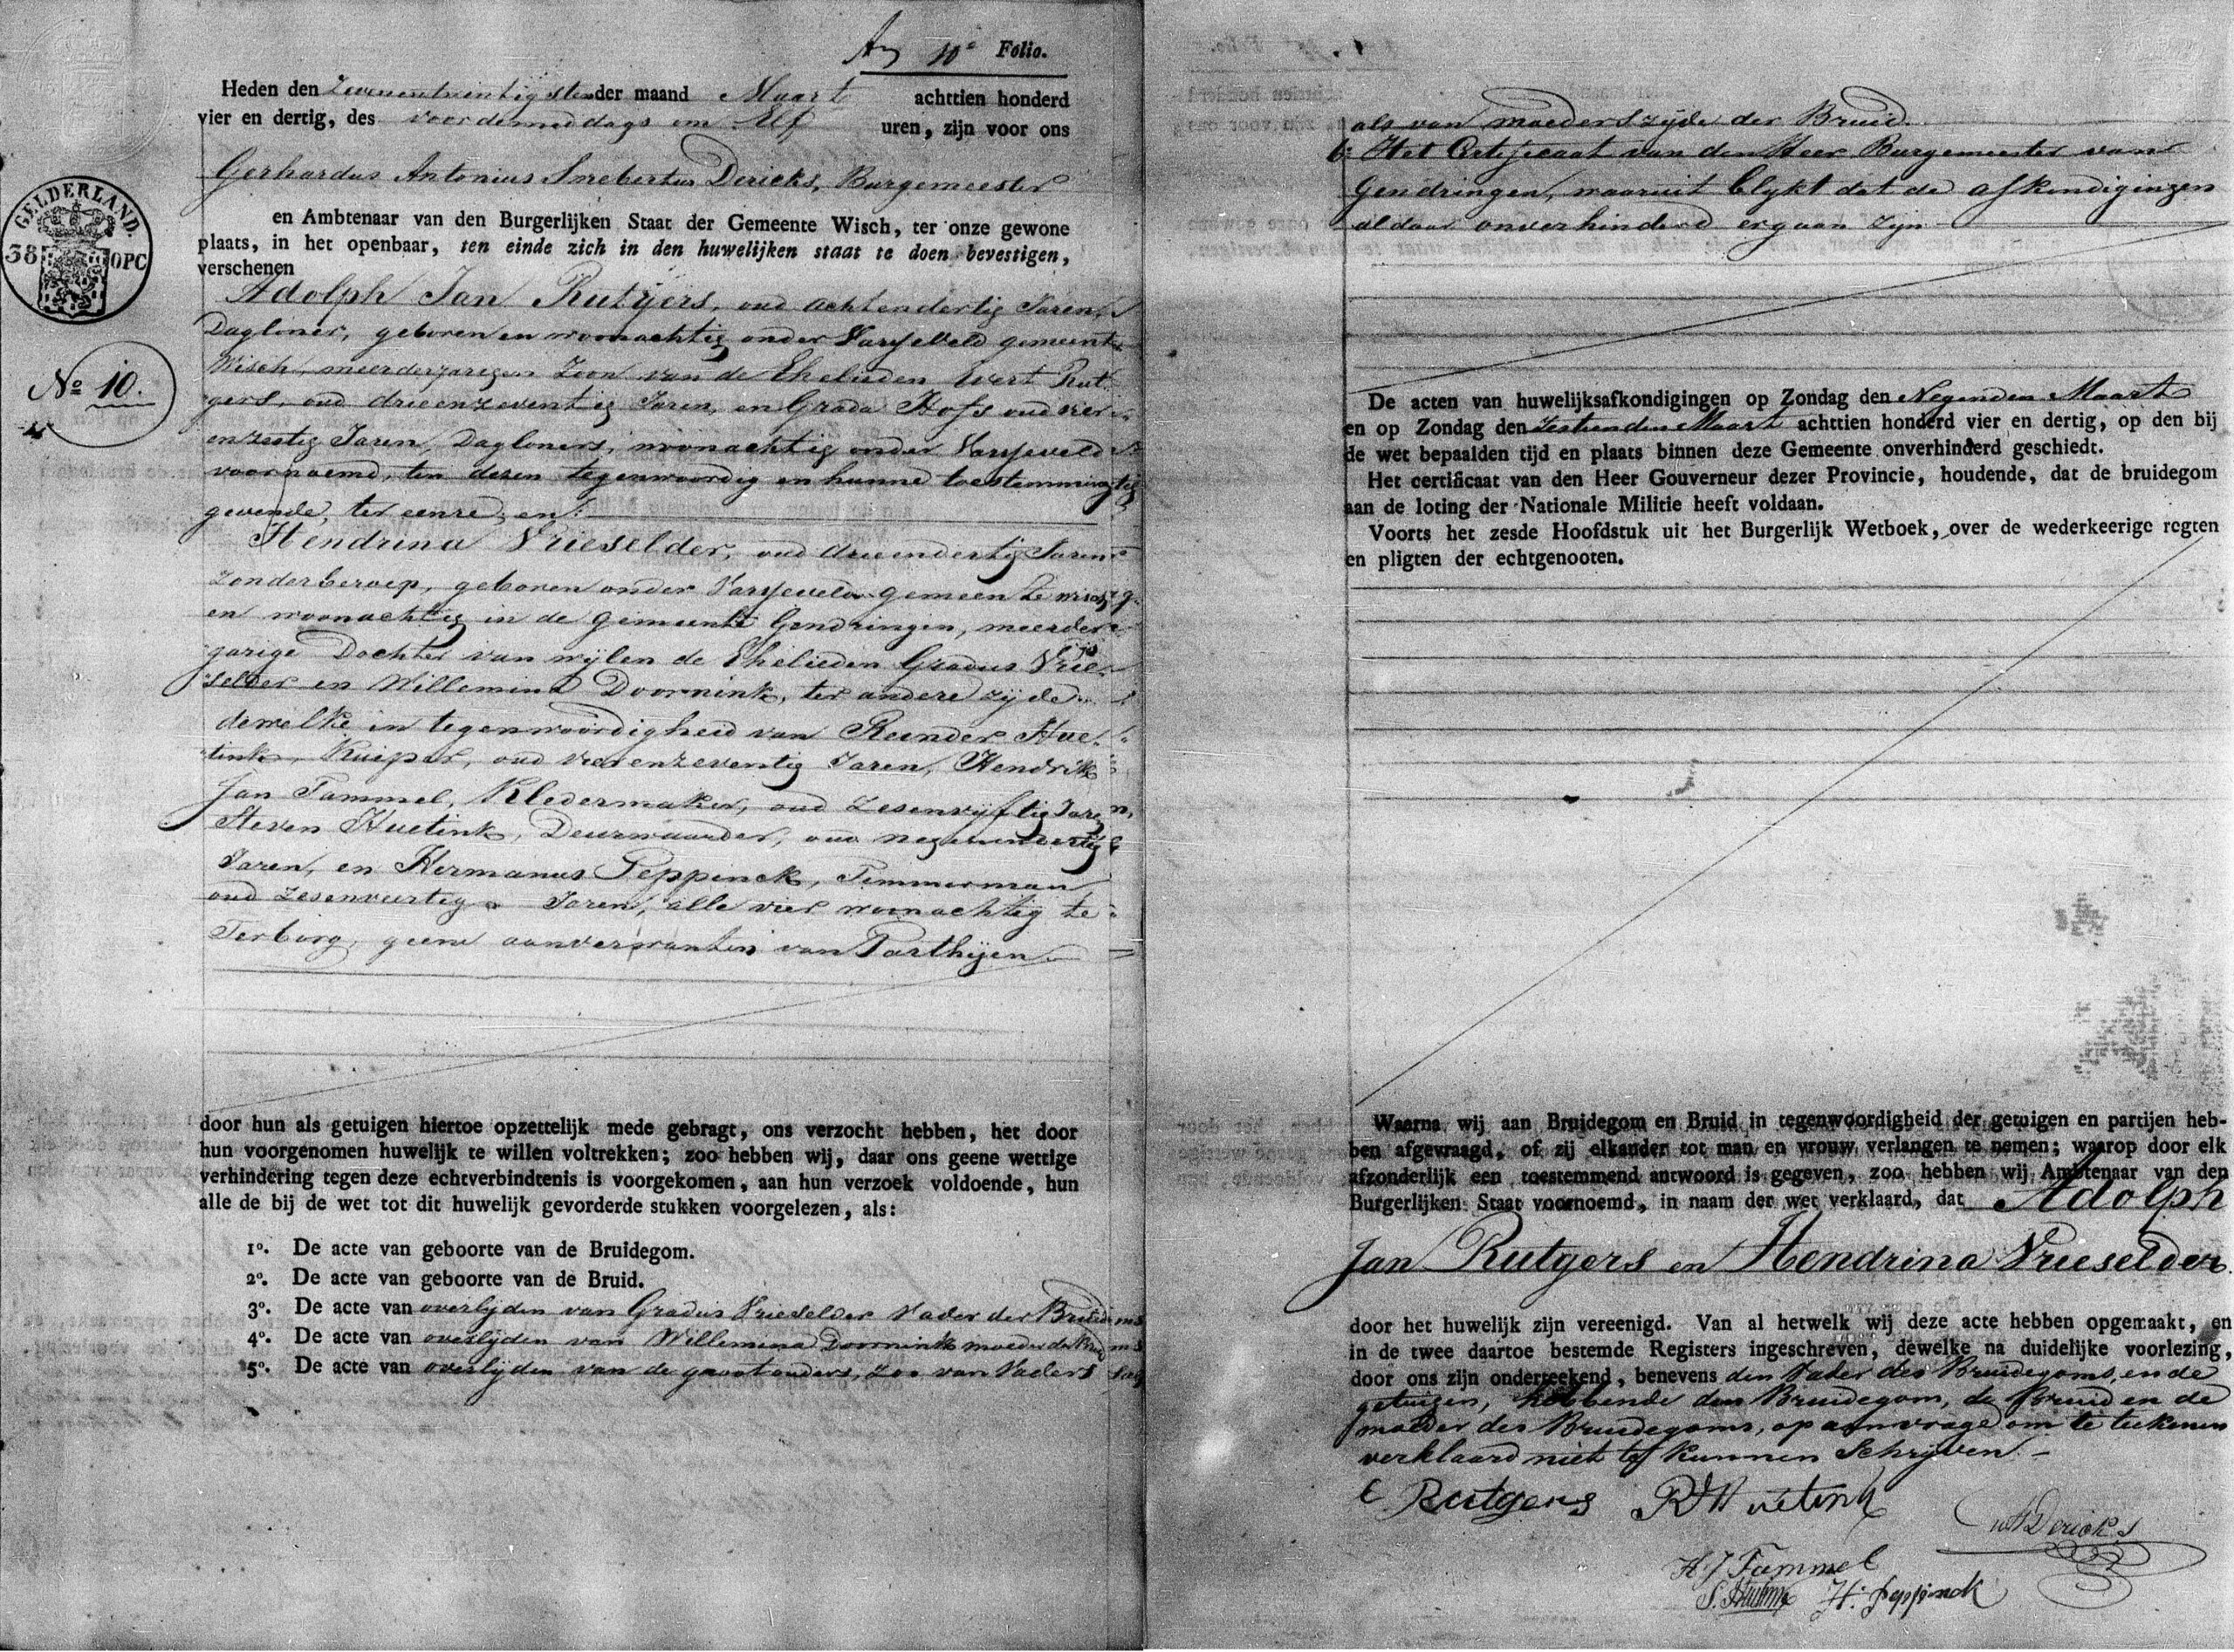 10e Folio.
Heden den Zevenentwintigsten der maand Maart achttien honderd
vier en dertig, des voordemiddags om Elf uren, zijn voor ons
Gerhardus Antonius Smebertus Dericks, Burgemeester
en Ambtenaar van den Burgerlijken Staat der Gemeente Wisch, ter onze gewone
plaats, in het openbaar, ten einde zich in den huwelijken staat te doen bevestigen,
verschenen
GELDERLAND.
38 OPC
No 10.
Adolph Jan Rutgers, oud achtendertig Jaren,
Dagloner, geboren en woonachtig onder Varsseveld gemeente
Wisch, meerderjarigen Zoon van de Ehelieden Evert Rut-
gers, oud drieenzeventig Jaren, en Grada Hofs oud vier
enzestig Jaren, Dagloners, woonachtig onder Varsseveld
voornoemd, ten dezen tegenwoordig en hunne toestemming
gevende, ter eenre; en:
Hendrina Vrieselder, oud drieendertig Jaren
zonder beroep, geboren onder Varsseveld gemeente Wisch
en woonachtig in de gemeente Gendringen, meerder
jarige Dochter van wijlen de Ehelieden Gradus Vrie-
selder en Willemina Doornink, ter andere zijde
dewelke in tegenwoordigheid van Reinder Hue-
tink, Kuiper, oud vierenzeventig Jaren, Hendrik
Jan Tammel, Kledermaker, oud zesenvijftig Jaren
Steven Huetink, Deurwaarder, oud negenendertig
Jaren, en Hermanus Peppinck, Timmerman
oud zesenveertig Jaren, alle vier woonachtig te
Terborg, geene aanverwanten van Parthijen
door hun als getuigen hiertoe opzettelijk mede gebragt, ons verzocht hebben, het door
hun voorgenomen huwelijk te willen voltrekken; zoo hebben wij, daar ons geene wettige
verhindering tegen deze echtverbindtenis is voorgekomen, aan hun verzoek voldoende, hun
alle de bij de wet tot dit huwelijk gevorderde stukken voorgelezen, als:
1o. De acte van geboorte van de Bruidegom.
2o. De acte van geboorte van de Bruid.
3o. De acte van overlijden van Gradus Vrieselder Vader der Bruid
4o. De acte van overlijden van Willemina Doornink moeder der Bruid
5o. De acte van overlijden van de grootouders, zoo van Vaders
als van moederszijde der Bruid.
6o Het Certificaat van den Heer Burgemeester van
Gendringen, waaruit blykt dat de afkondigingen
aldaar onverhinderd ergaan zijn
De acten van huwelijksafkondigingen op Zondag den Negenden Maart
en op Zondag den Zestienden Maart achttien honderd vier en dertig, op den bij
de wet bepaalden tijd en plaats binnen deze Gemeente onverhinderd geschiedt.
Het certificaat van den Heer Gouverneur dezer Provincie, houdende, dat de bruidegom
aan de loting der Nationale Militie heeft voldaan.
Voorts het zesde Hoofdstuk uit het Burgerlijk Wetboek, over de wederkeerige regten
en pligten der echtgenooten.
Waarna wij aan Bruidegom en Bruid in tegenwoordigheid der getuigen en partijen heb-
ben afgevraagd, of zij elkander tot man en vrouw verlangen te nemen; waarop door elk
afzonderlijk een toestemmend antwoord is gegeven, zoo hebben wij Ambtenaar van den
Burgerlijken Staat voornoemd, in naam der wet verklaard, dat Adolph
Jan Rutgers en Hendrina Vrieselder
door het huwelijk zijn vereenigd. Van al hetwelk wij deze acte hebben opgemaakt, en
in de twee daartoe bestemde Registers ingeschreven, dewelke na duidelijke voorlezing,
door ons zijn onderteekend, benevens den Vader des Bruidegoms, en de
getuigen, hebbende den Bruidegom, de Bruid en de
moeder des Bruidegoms, op aanvrage om te teekenen
verklaard niet te kunnen Schrijven
E Rutgers RHuetink
Dericks
H J Tammel
S. Huetink H: Peppinck